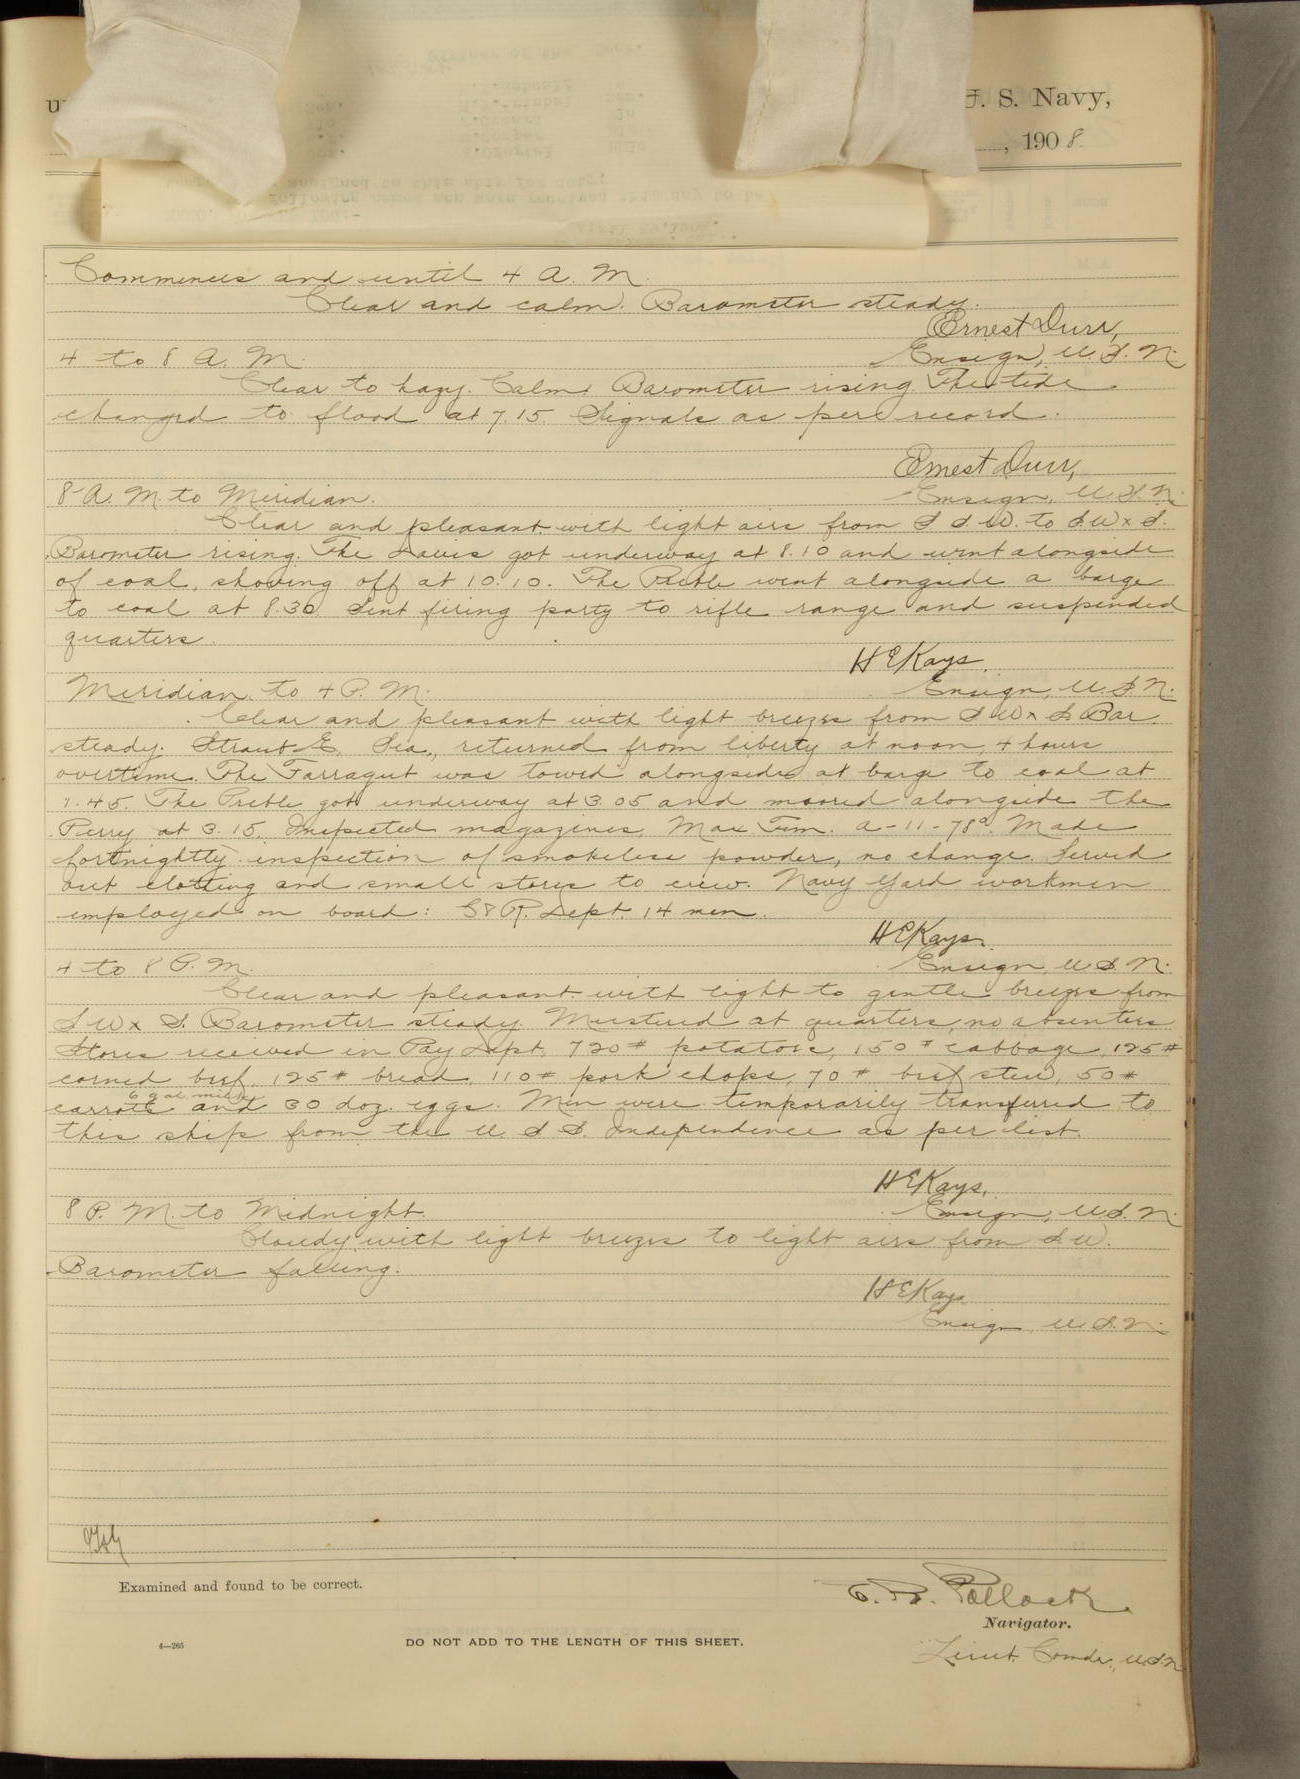 J. S. Navy,
, 1908.
Commences and until 4 A. M.
Clear and calm. Barometer steady.
Ernest Durr,
4 to 8 A. M.
Ensign, U. S. N.
Clear to hazy. Calm. Barometer rising. The tide
changed to flood at 7.15. Signals as per record.
Ernest Durr,
8 A. M. to Meridian.
Ensign, U. S. N.
Clear and pleasant with light airs from S. S. W. to S. W x S.
Barometer rising. The Davis got underway at 8.10 and went alongside
of coal, shoving off at 10.10. The Preble went alongside a barge
to coal at 8.30. Sent firing party to rifle range and suspended
quarters.
H E Kays.
Meridian to 4 P. M.
Ensign, U. S. N.
Clear and pleasant with light breezes from S W x S. Bar.
steady. E, Sea., returned from liberty at noon, 4 hours
overtime. The Farragut was towed alongside at barge to coal at
1.45. The Preble got underway at 3.05 and moored alongside the
Perry at 3.15. Inspected magazines, Max Tem. A-11-78°. Made
fortnightly inspection of smokeless powder, no change. Served
out clothing and small stores to crew. Navy Yard workmen
employed on board: C & R. Dept. 14 men.
H E Kays.
4 to 8 P. M.
Ensign, U. S. N.
Clear and pleasant with light to gentle breezes from
S W x S. Barometer steady. Mustered at quarters, no absentees.
Stores received in Pay Dept. 720# potatoes, 150# cabbage, 125#
corned beef, 125# bread, 110# pork chops, 70# beef stew, 50#
6 gal. milk
carrots and 30 doz. eggs. Men were temporarily transferred to
this ship from the U. S. S. Independence as per list.
H E Kays,
8 P. M. to Midnight.
Ensign, U. S. N.
Cloudy with light breezes to light airs from S W.
Barometer falling.
H E Kays
Ensign, U. S. N.
Examined and found to be correct.
Pollock
Navigator.
4—265
DO NOT ADD TO THE LENGTH OF THIS SHEET.
Lieut. Comdr., U.S.N.